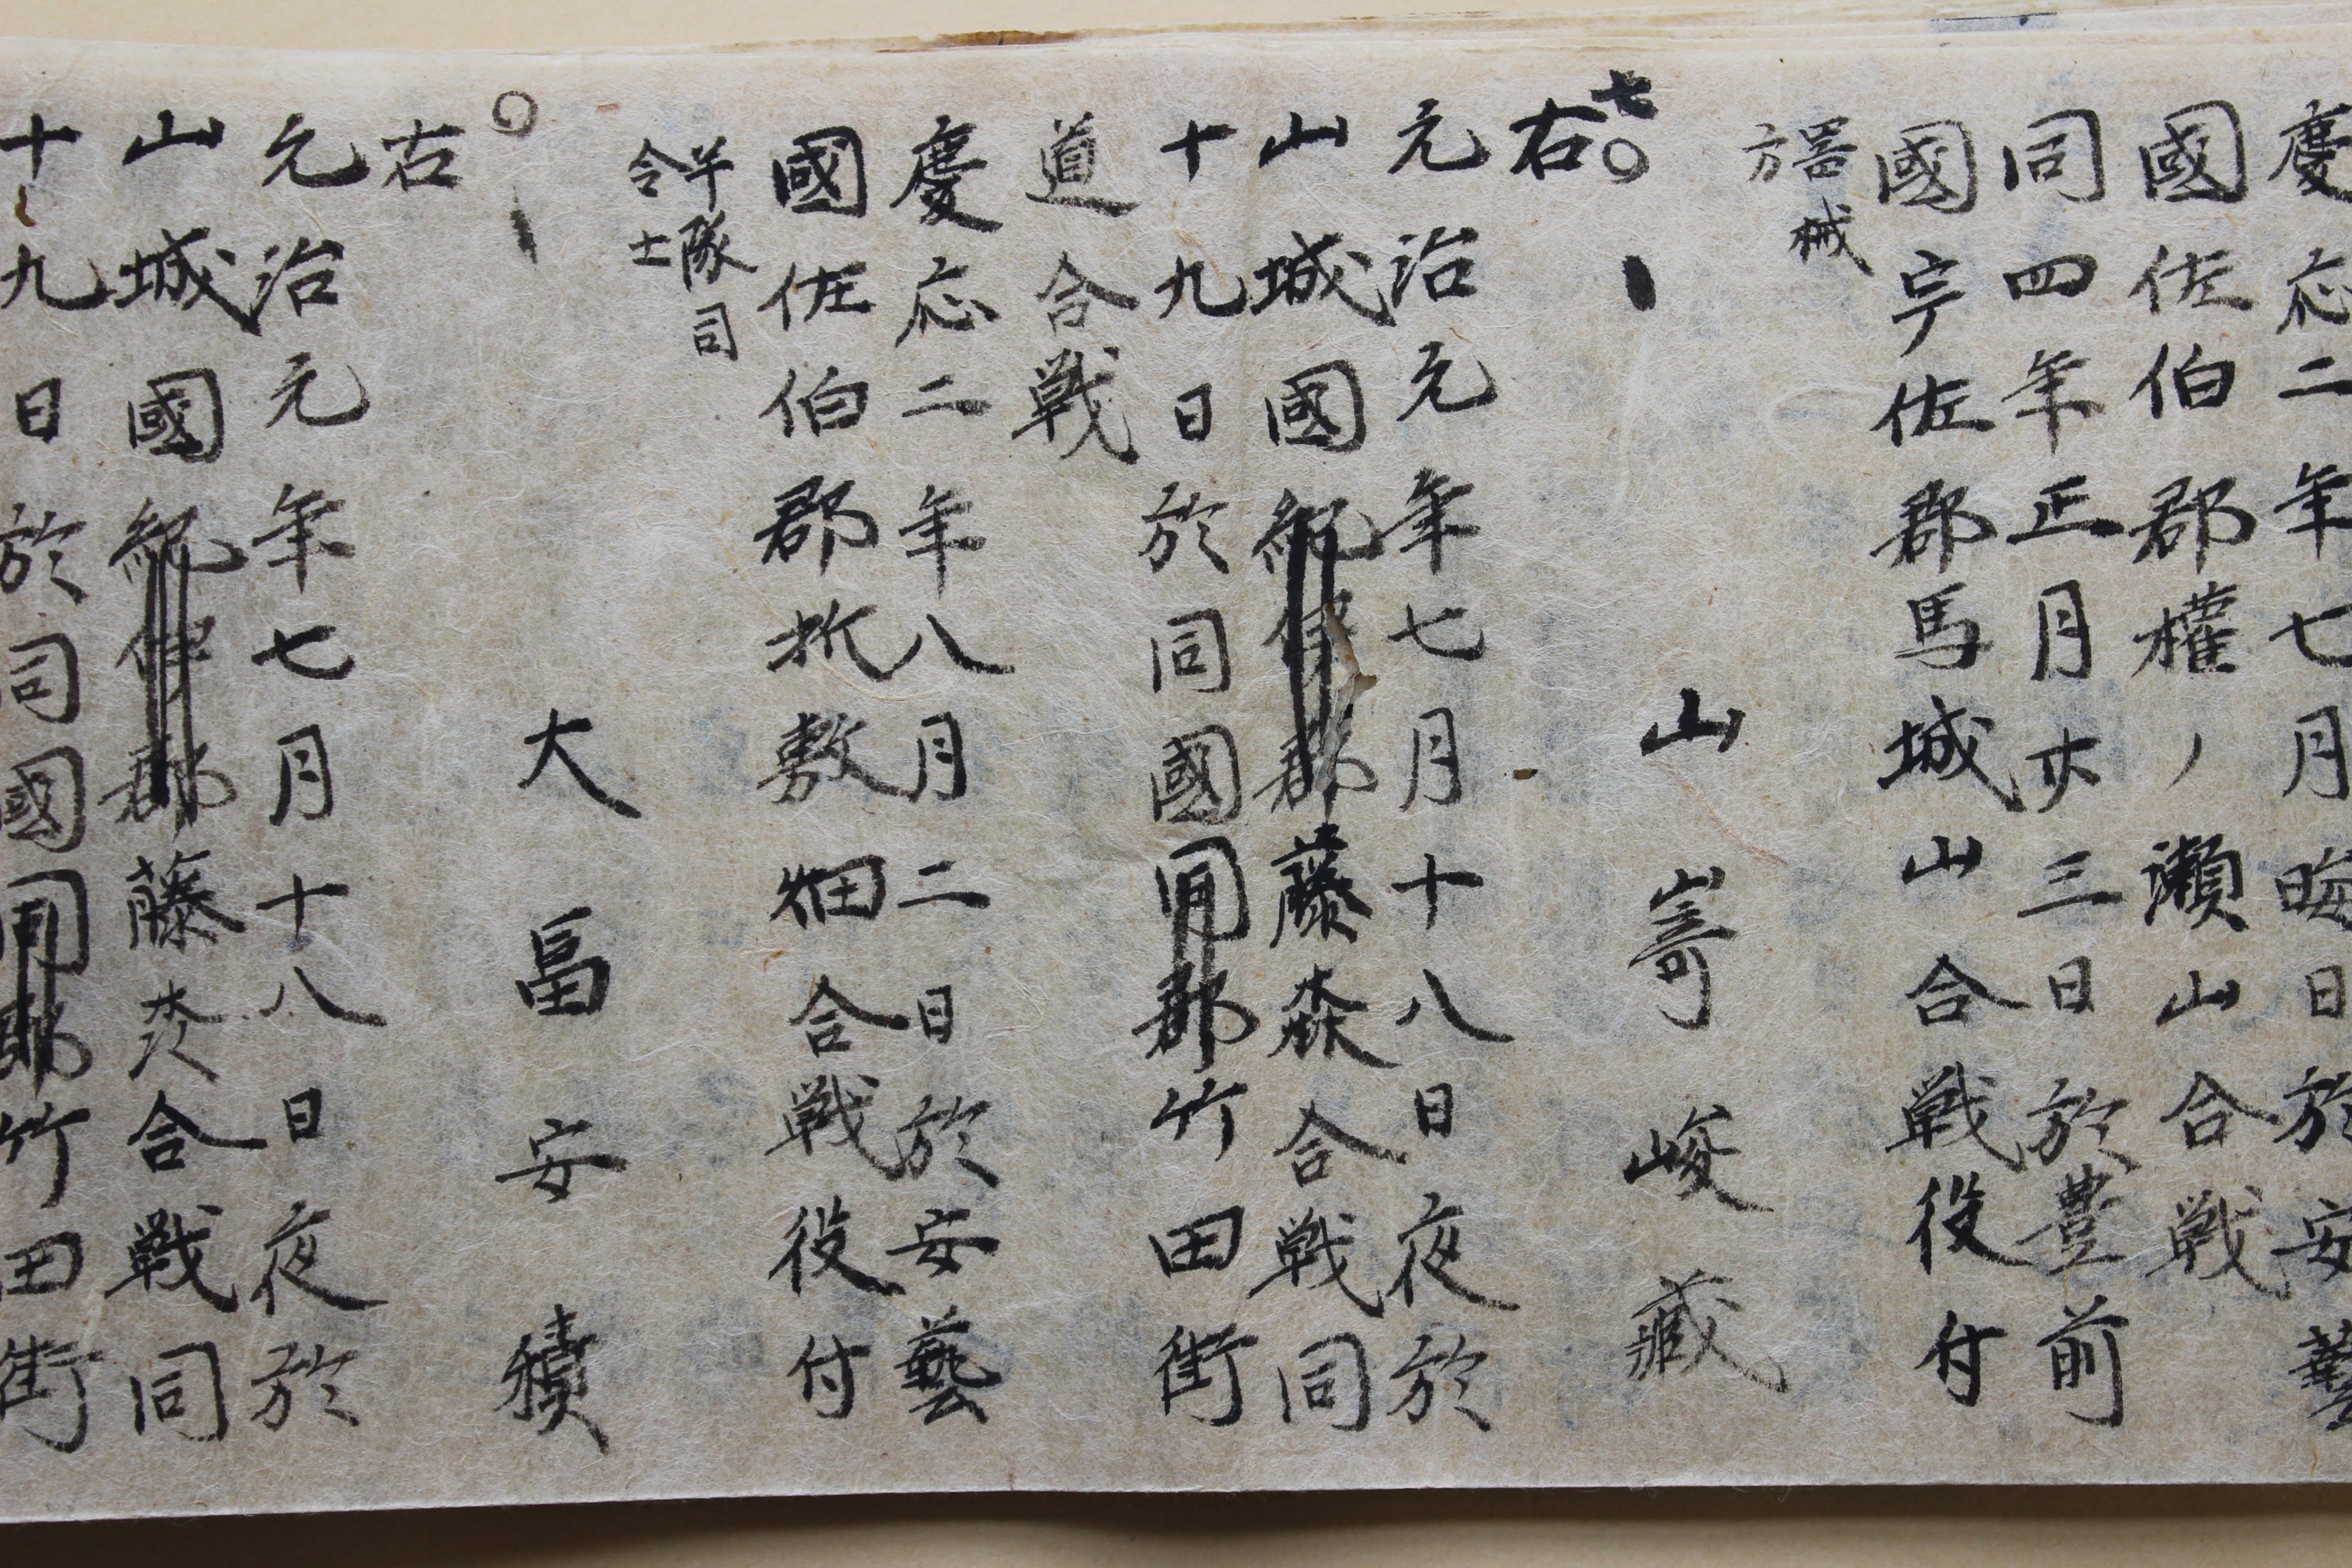 慶応二年七月晦日於安藝
國佐伯郡權ノ瀬山合戦
同四年正月廿三日於豊前
國宇佐郡馬城山合戦役付
器械
方
七〇 山嵜峻藏
右
元治元年七月十八日夜於
山城國紀伊郡藤森合戦同
十九日於同國同郡竹田街
道合戦
慶応二年八月二日於安藝
國佐伯郡折敷畑合戦役付
半隊司
令士
〇 大畠安積
右
元治元年七月十八日夜於
山城國紀伊郡藤森合戦同
十九日於同國同郡竹田街